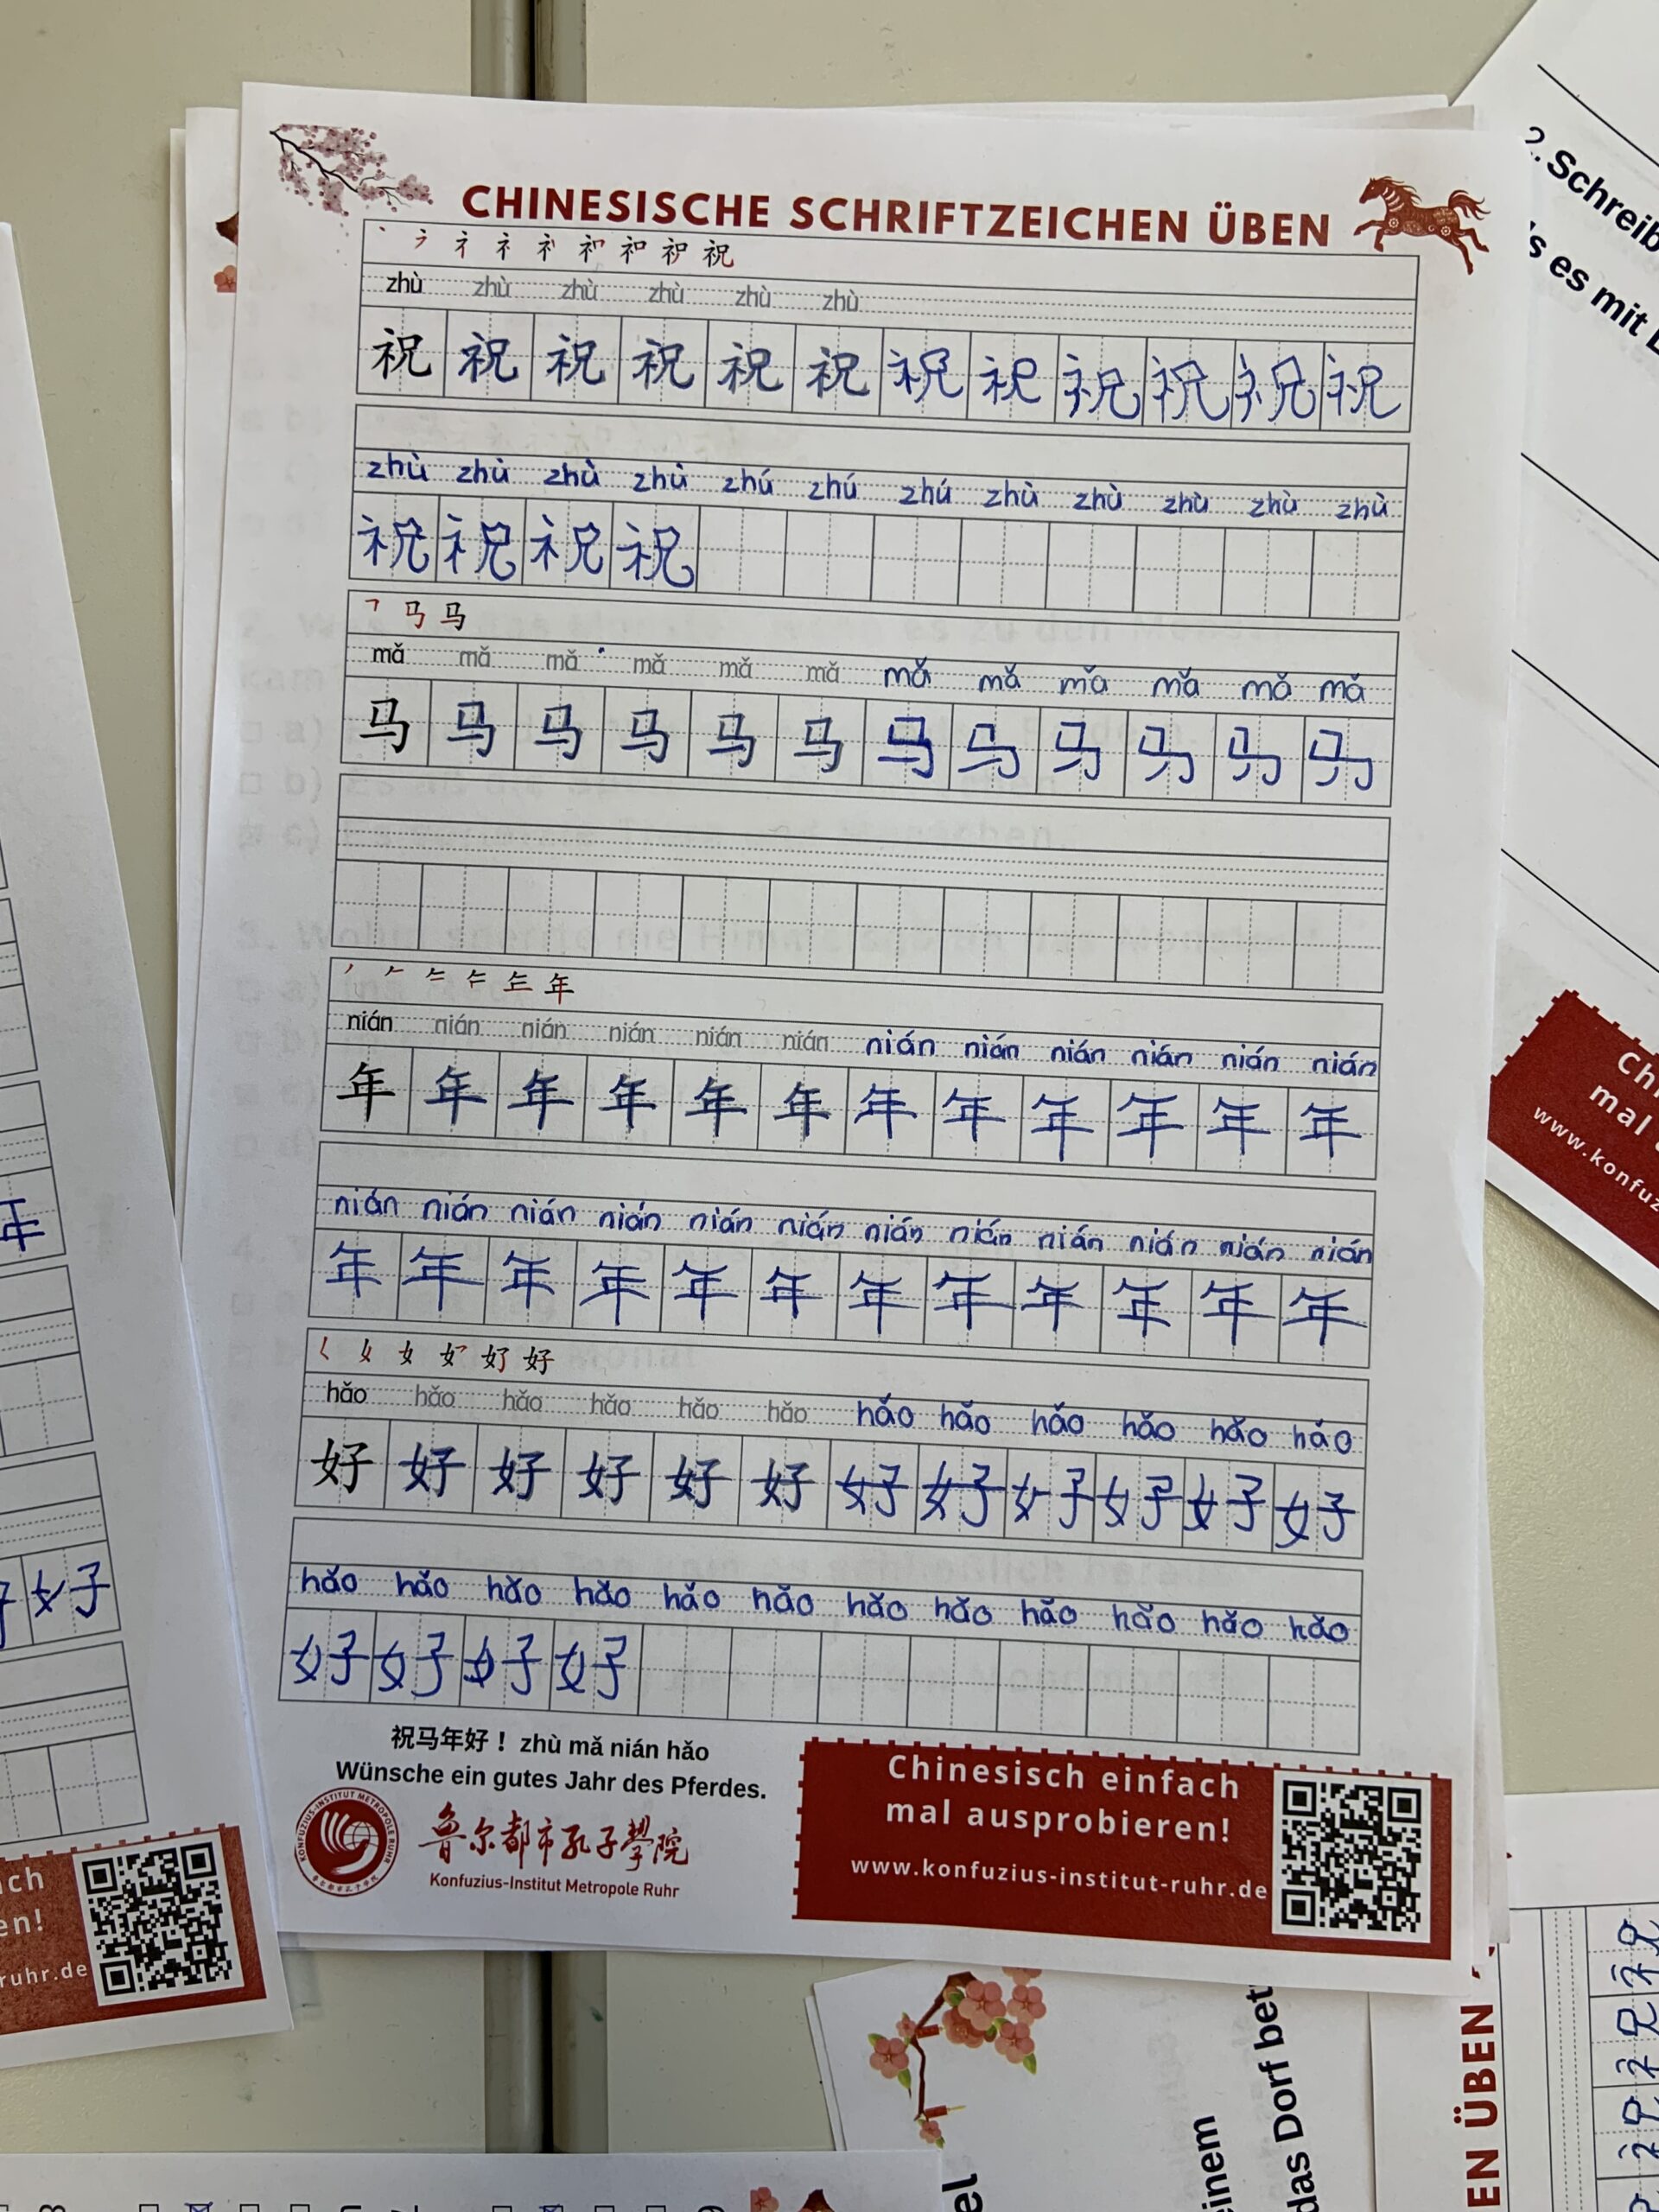 CHINESISCHE SCHRIFTZEICHEN ÜBEN
祝
zhù zhù zhù zhù zhù zhù
祝 祝 祝 祝 祝 祝 祝 祝 祝 祝 祝 祝
zhù zhù zhù zhù zhú zhú zhú zhù zhù zhù zhù zhù
祝 祝 祝 祝
马
mǎ mǎ mǎ mǎ mǎ mǎ mǎ mǎ mǎ mǎ mǎ mǎ
马 马 马 马 马 马 马 马 马 马 马 马
年
nián nián nián nián nián nián nián nián nián nián nián nián
年 年 年 年 年 年 年 年 年 年 年 年
nián nián nián nián nián nián nián nián nián nián nián nián
年 年 年 年 年 年 年 年 年 年 年 年
女 好
hǎo hǎo hǎo hǎo hǎo hǎo hǎo hǎo hǎo hǎo hǎo háo
好 好 好 好 好 好 好 好 好 好 好 好
hǎo hǎo hǎo hǎo hǎo hǎo hǎo hǎo hǎo hǎo hǎo hǎo
好 好 好 好
祝马年好！ zhù mǎ nián hǎo
Wünsche ein gutes Jahr des Pferdes.
KONFUZIUS-INSTITUT METROPOLE RUHR
鲁尔都市孔子學院
Konfuzius-Institut Metropole Ruhr
Chinesisch einfach
mal ausprobieren!
www.konfuzius-institut-ruhr.de
2. Schreib
es mit
mal
www.konfuz
年
好
ruhr.de
EN ÜBEN
das Dorf
einem